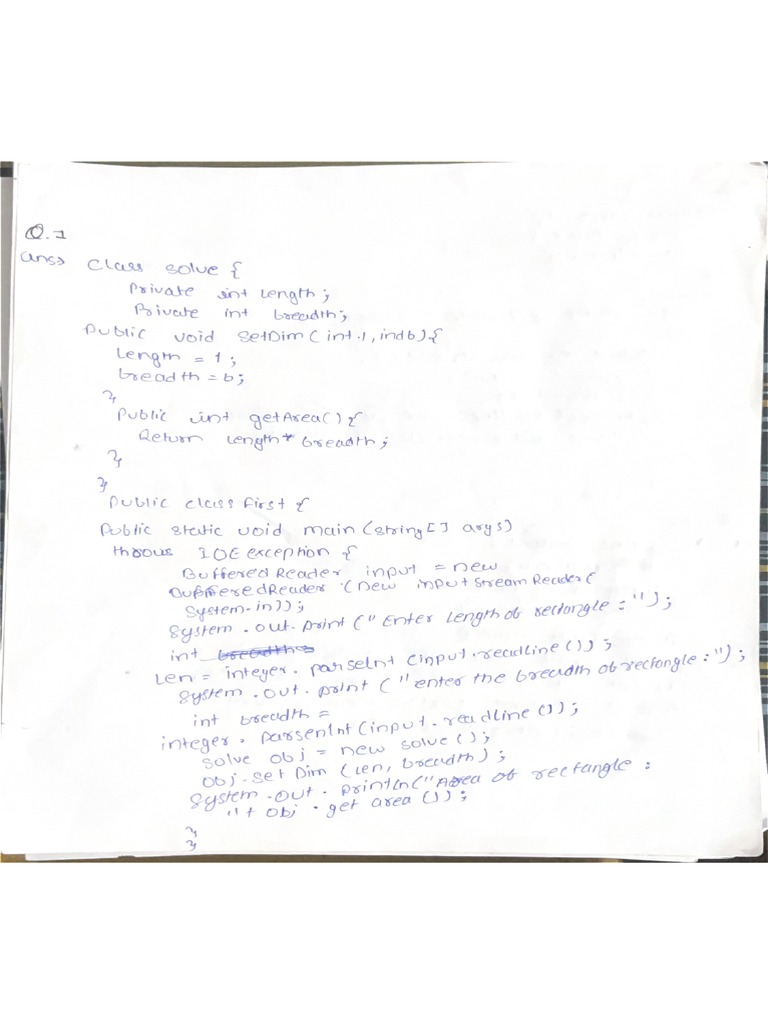 Q.1
Ans> Class solve {
Private int length;
Private int breadth;
Public void SetDim(int.1, indb){
Length = 1;
breadth = b;
}
Public int getArea(){
Return Length* breadth;
}
}
Public class First {
Public static void main (string[] args)
throus IOE exception {
Buffered Reader input = new
BufferedReader (new input stream Reader(
System.in));
System.out.print ("Enter Length of rectangle :");
int
Len = integer. parseInt (input.readline());
System.out.print ("enter the breadth of rectangle :");
int breadth =
integer. parsenInt (input. readline());
Solve obj = new solve();
obj.set Dim (Len, breadth);
System.out. println("Area of rectangle :
"+ obj .get area ());
}
}